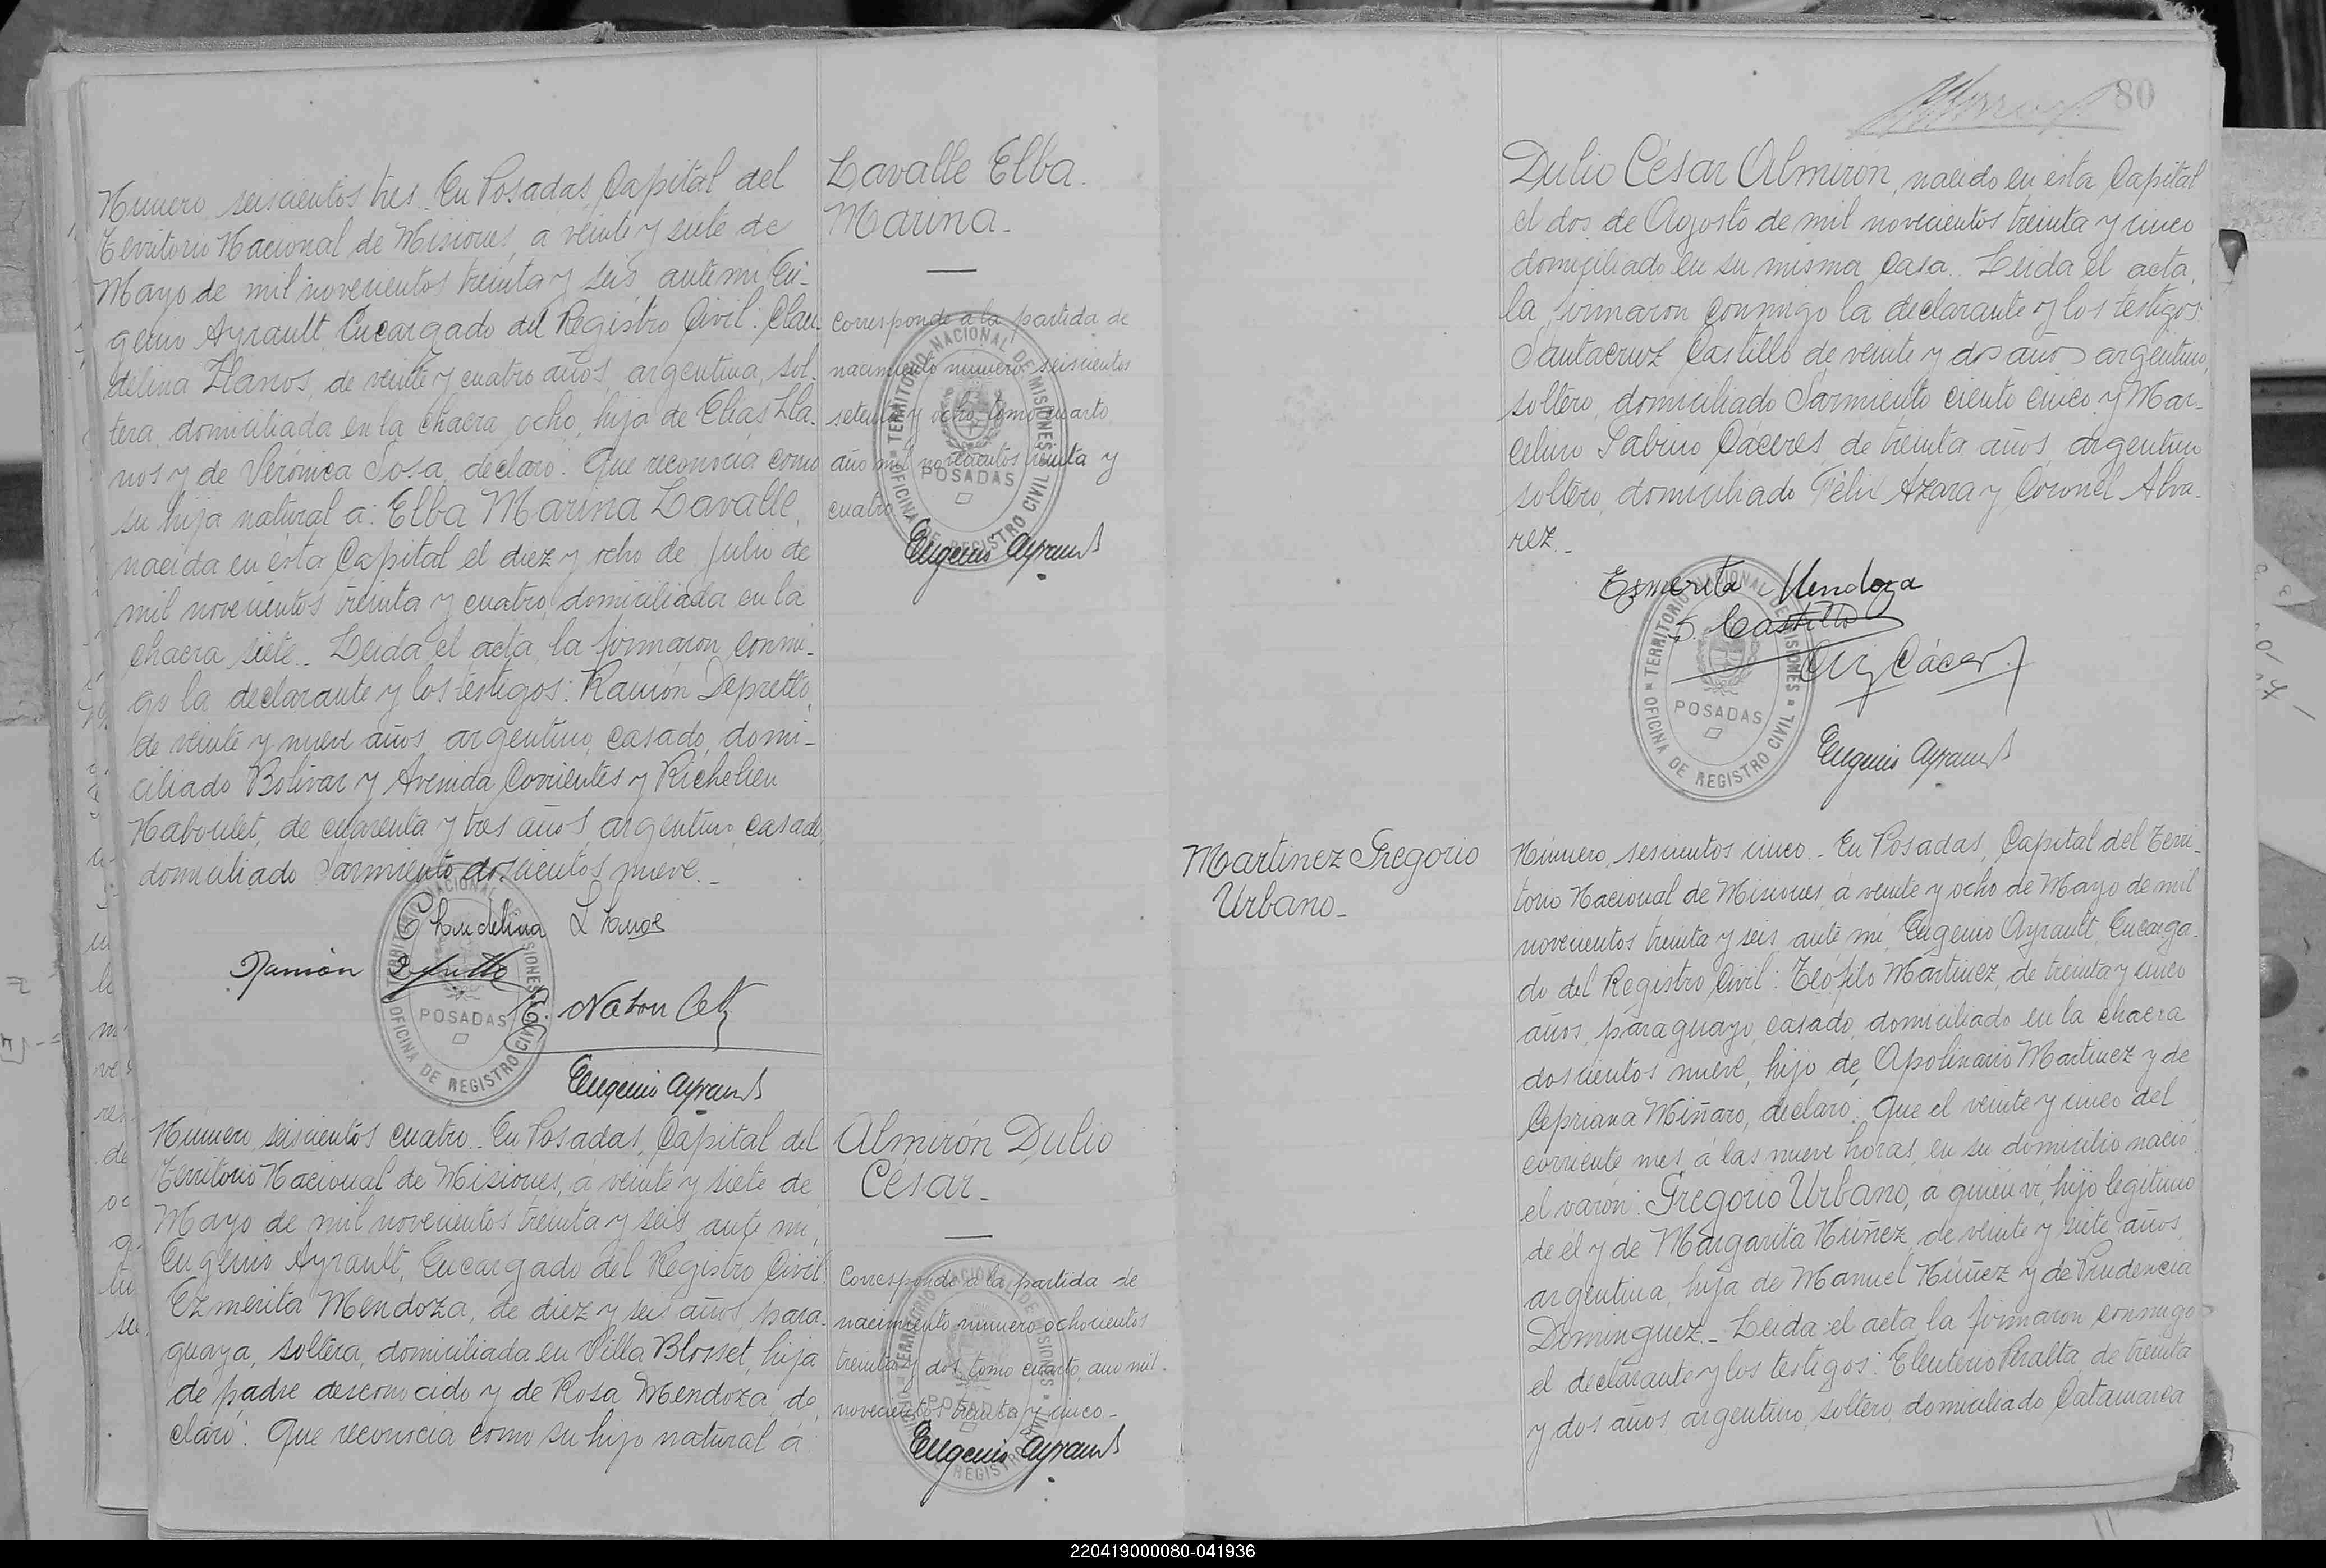 Número seiscientos tres. En Posadas, Capital del
Territorio Nacional de Misiones, á veinte y siete de
Mayo de mil novecientos treinta y seis, ante mi Eu-
genio Ayrault, Encargado del Registro Civil: Clau-
delina Llanos, de veinte y cuatro años, argentina, sol-
tera, domiciliada en la chacra ocho, hija de Elías Lla-
nos y de Verónica Sosa, declaró: Que reconocía como
su hija natural a: Elba Marina Lavalle,
nacida en ésta Capital el diez y ocho de Julio de
mil novecientos treinta y cuatro, domiciliada en la
chacra siete. Leida el acta, la firmaron conmi-
go la declarante y los testigos: Ramón Depretto,
de veinte y nueve años, argentino, casado, domi-
ciliado Bolivar y Avenida Corrientes y Richelieu
Naboulet, de cuarenta y tres años, argentino, casado,
domiciliado Sarmiento doscientos nueve.-
Claudelina Llanos
Ramón Depretto
R. Naboulet
Eugenio Ayrault
TERRITORIO NACIONAL DE MISIONES
POSADAS
OFICINA DE REGISTRO CIVIL
Lavalle Elba
Marina.-
Corresponde a la partida de
nacimiento número seiscientos
setenta y ocho, tomo cuarto,
año mil novecientos treinta y
cuatro
TERRITORIO NACIONAL DE MISIONES
POSADAS
OFICINA DE REGISTRO CIVIL
Eugenio Ayrault
Número seiscientos cuatro. En Posadas, Capital del
Territorio Nacional de Misiones, á veinte y siete de
Mayo de mil novecientos treinta y seis, ante mi,
Eugenio Ayrault, Encargado del Registro Civil:
Ezmerita Mendoza, de diez y seis años, para-
guaya, soltera, domiciliada en Villa Blosset, hija
de padre desconocido y de Rosa Mendoza, de-
claró: Que reconocía como su hijo natural á
Almirón Dulio
César.-
Corresponde a la partida de
nacimiento número ochocientos
treinta y dos, tomo cuarto, año mil
novecientos treinta y cinco.-
TERRITORIO NACIONAL DE MISIONES
POSADAS
OFICINA DE REGISTRO CIVIL
Eugenio Ayrault
80
Dulio César Almirón, nacido en ésta Capital
el dos de Agosto de mil novecientos treinta y cinco
domiciliado en su misma casa. Leida el acta,
la firmaron conmigo la declarante y los testigos:
Santacruz Castillo de veinte y dos años argentino,
soltero, domiciliado Sarmiento ciento cinco y Mar-
celino Sabino Cáceres, de treinta años, argentino
soltero, domiciliado Félix Azara y Coronel Alva-
rez.-
Esmerita Mendoza
S. Castillo
Cáceres
Eugenio Ayrault
TERRITORIO NACIONAL DE MISIONES
POSADAS
OFICINA DE REGISTRO CIVIL
Martinez Gregorio
Urbano.-
Número, sescientos cinco.- En Posadas, Capital del Terri-
torio Nacional de Misiones, á veinte y ocho de Mayo de mil
novecientos treinta y seis, ante mi, Eugenio Ayrault, Encarga-
do del Registro Civil: Teófilo Martinez, de treinta y cinco
años, paraguayo, casado, domiciliado en la chacra
doscientos nueve, hijo de Apolinario Martinez y de
Cepriana Miñaro, declaró: Que el veinte y cinco del
corriente mes, á las nueve horas, en su domicilio nació
el varón: Gregorio Urbano, a quien ví, hijo legitimo
de él y de Margarita Núñez, de veinte y siete años,
argentina, hija de Manuel Núñez y de Prudencia
Dominguez.- Leida el acta la firmaron conmigo
el declarante y los testigos: Eleuterio Peralta de treinta
y dos años, argentino, soltero, domiciliado Catamarca
220419000080-041936